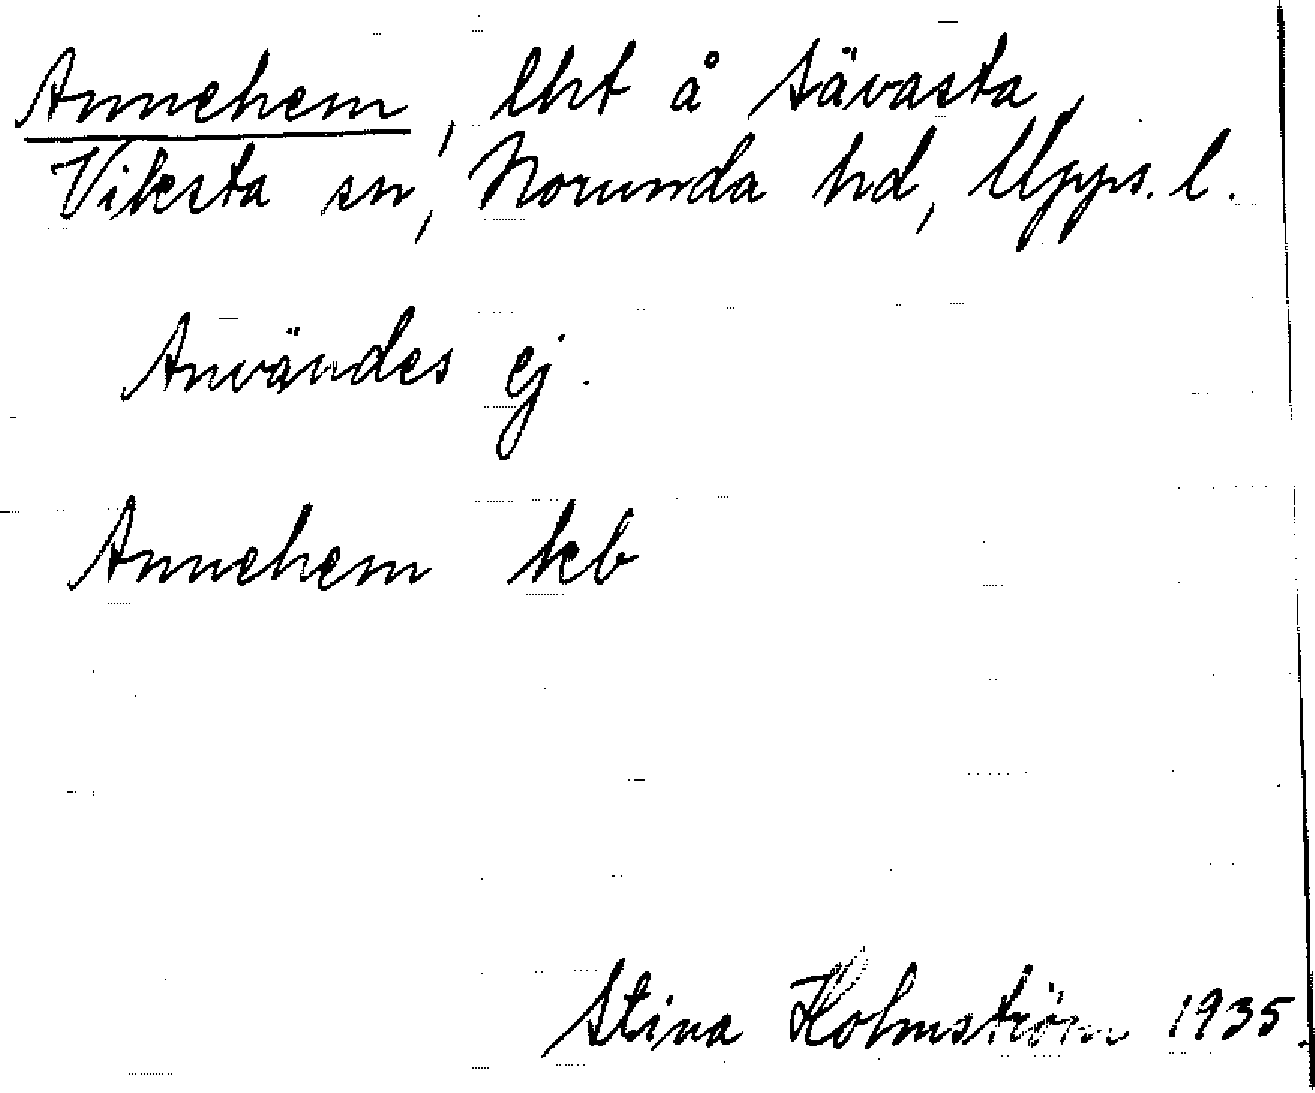 Annehem, lht å Sävasta,
Viksta sn, Norunda hd, Upps. l.
Användes ej.
Annehem kb
Stina Holmström 1935.